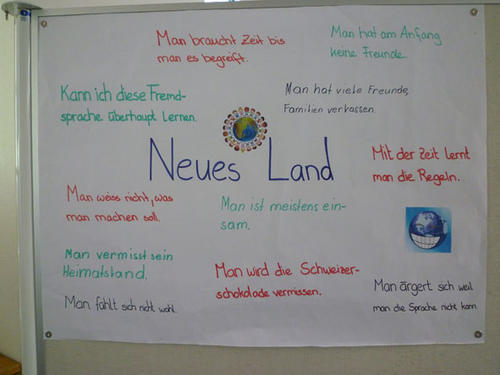 Man braucht Zeit bis
man es begreift.
Man hat am Anfang
keine Freunde.
Kann ich diese Fremd-
sprache überhaupt lernen.
Man hat viele Freunde,
Familien verlassen.
Neues Land
Mit der Zeit lernt
man die Regeln.
Man weiss nicht, was
man machen soll.
Man ist meistens ein-
sam.
Man vermisst sein
Heimatsland.
Man wird die Schweizer-
schokolade vermissen.
Man ärgert sich weil
man die Sprache nicht kann.
Man fühlt sich nicht wohl.